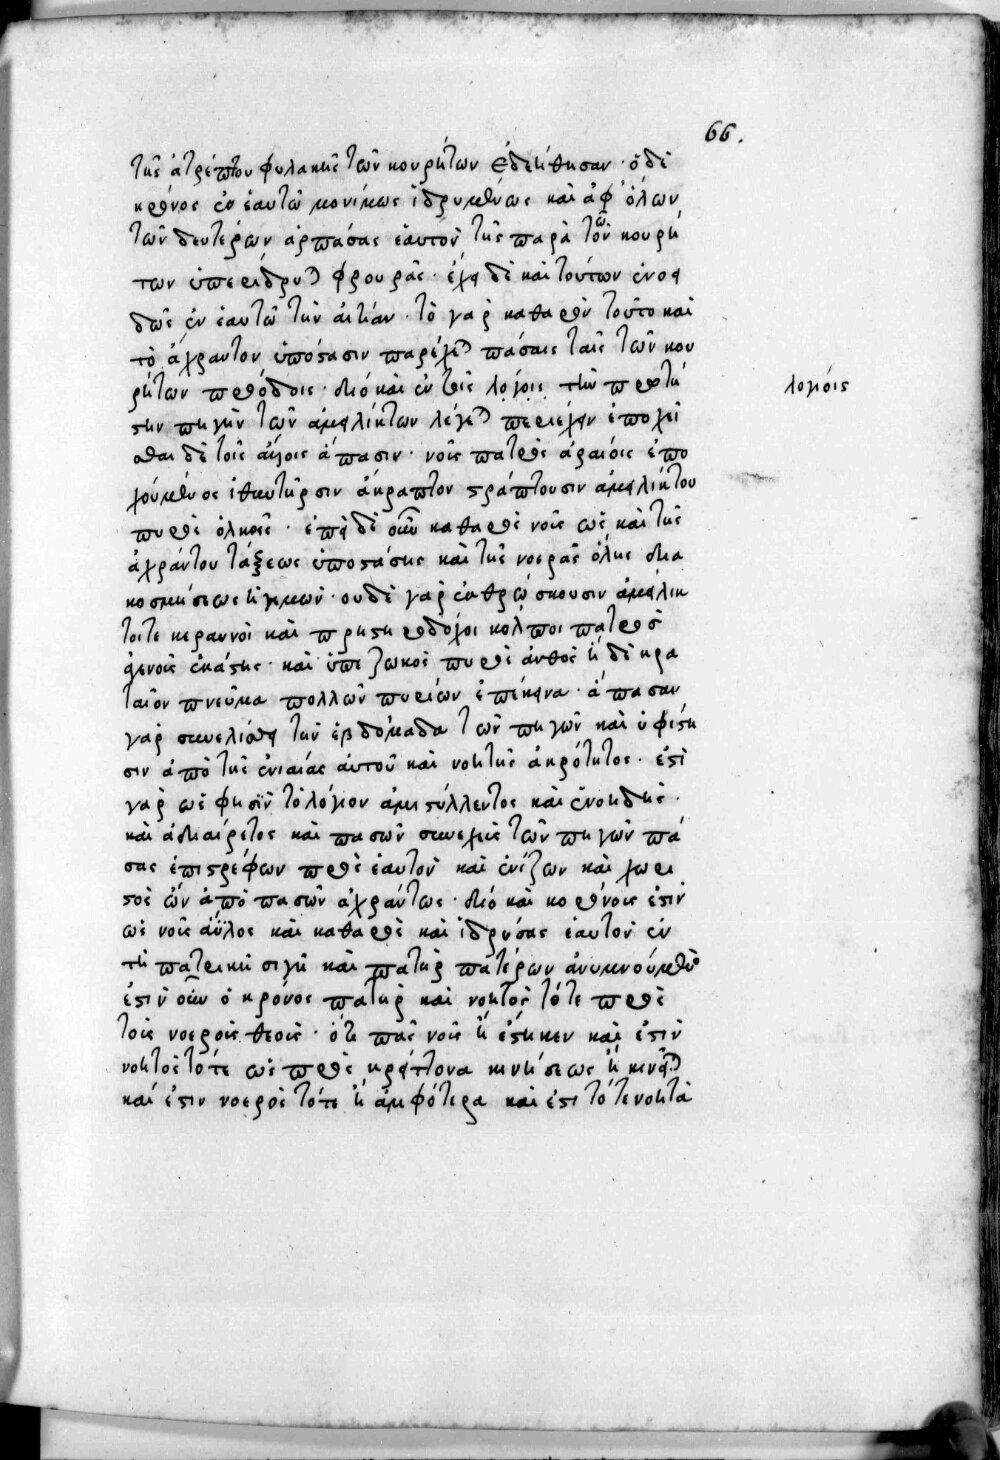 66.
τῆς ἀτρέπτου φυλακῆς τῶν κουρήτων ἐδεήθησαν· ὁ δὲ
κρόνος ἐν ἑαυτῶ μονίμως ἱδρυμένως καὶ ἀφ' ὅλων
τῶν δευτέρων ἁρπάσας ἑαυτὸν τῆς παρὰ τῶν κουρή
των ὑπερίδρυται φρουρᾶς· ἔχει δὲ καὶ τούτων ἑνοει
δῶς ἐν ἑαυτῶ τὴν αἰτίαν· τὸ γὰρ καθαρὸν τοῦτο καὶ
τὸ ἄχραντον ὑπόστασιν παρέχεται πάσαις ταῖς τῶν κου
ρήτων προόδοις· διὸ καὶ ἐν τοῖς λογίοις τὴν πρωτί
λογίοις
στην πηγὴν τῶν ἀμειλίκτων λέγεται περιέχειν ἐποχεῖ
σθαι δὲ τοῖς ἄλλοις ἅπασιν· νοῦς πατρὸς ἀραιοῖς ἐπο
χούμενος ἰθυντῆρσιν ἄκναπτον στράπτουσιν ἀμειλίκτου
πυρὸς ὁλκοῖς· ἐπεὶ δὲ οὖν καθαρὸς νοῦς ὡς καὶ τῆς
ἀχράντου τάξεως ὑποστάτης καὶ τῆς νοερᾶς ὅλης δια
κοσμήσεως ἡγεμών· ουδὲ γὰρ ἐνθρώσκουσιν ἀμείλικ
τοιτε κεραυνοὶ καὶ πρηστηροδόχοι κόλποι πατρὸς
γενοῖς ἑκάτης· καὶ ὑπεζωκὸς πυρὸς ἄνθος ἡ δὲ κρα
ταιὸν πνεῦμα πολλῶν πυρίων ἐπέκεινα· ἅπασαν
γὰρ συνελίσσει τὴν ἑβδόμαδα τῶν πηγῶν καὶ ὑφίστη
σιν ἀπὸ τῆς ἑνιαίας αὐτοῦ καὶ νοητῆς ἀκρότητος· ἐστὶ
γὰρ ὡς φησὶν τὸ λόγιον ἀμιστύλλευτος καὶ ἑνοειδής·
καὶ ἀδιαίρετος καὶ πασῶν συνοχεὺς τῶν πηγῶν πά
σας ἐπιστρέφων πρὸς ἑαυτὸν καὶ ἑνίζων καὶ χωρι
στὸς ὢν ἀπὸ πασῶν ἀχράντως· διὸ καὶ κορόνους ἐστὶν
ὡς νοῦς ἄϋλος καὶ καθαρὸς καὶ ἱδρύσας ἑαυτὸν ἐν
τῆ πατρικῆ σιγῆ καὶ πατὴρ πατέρων ἀνυμνούμενος
ἐστὶν οὖν ὁ κρόνος πατὴρ καὶ νοητός τότε πρὸς
τοῖς νοεροῖς θεοῖς· ὅτι πᾶς νοῦς ἢ ἕστηκεν καὶ ἐστὶν
νοητὸς τότε ὡς πρὸς κρείττονα κινήσεως ἢ κινεῖται
καὶ ἐστιν νοερὸς τότε ἢ ἀμφότερα καὶ ἐστὶ τότε νοητὰ